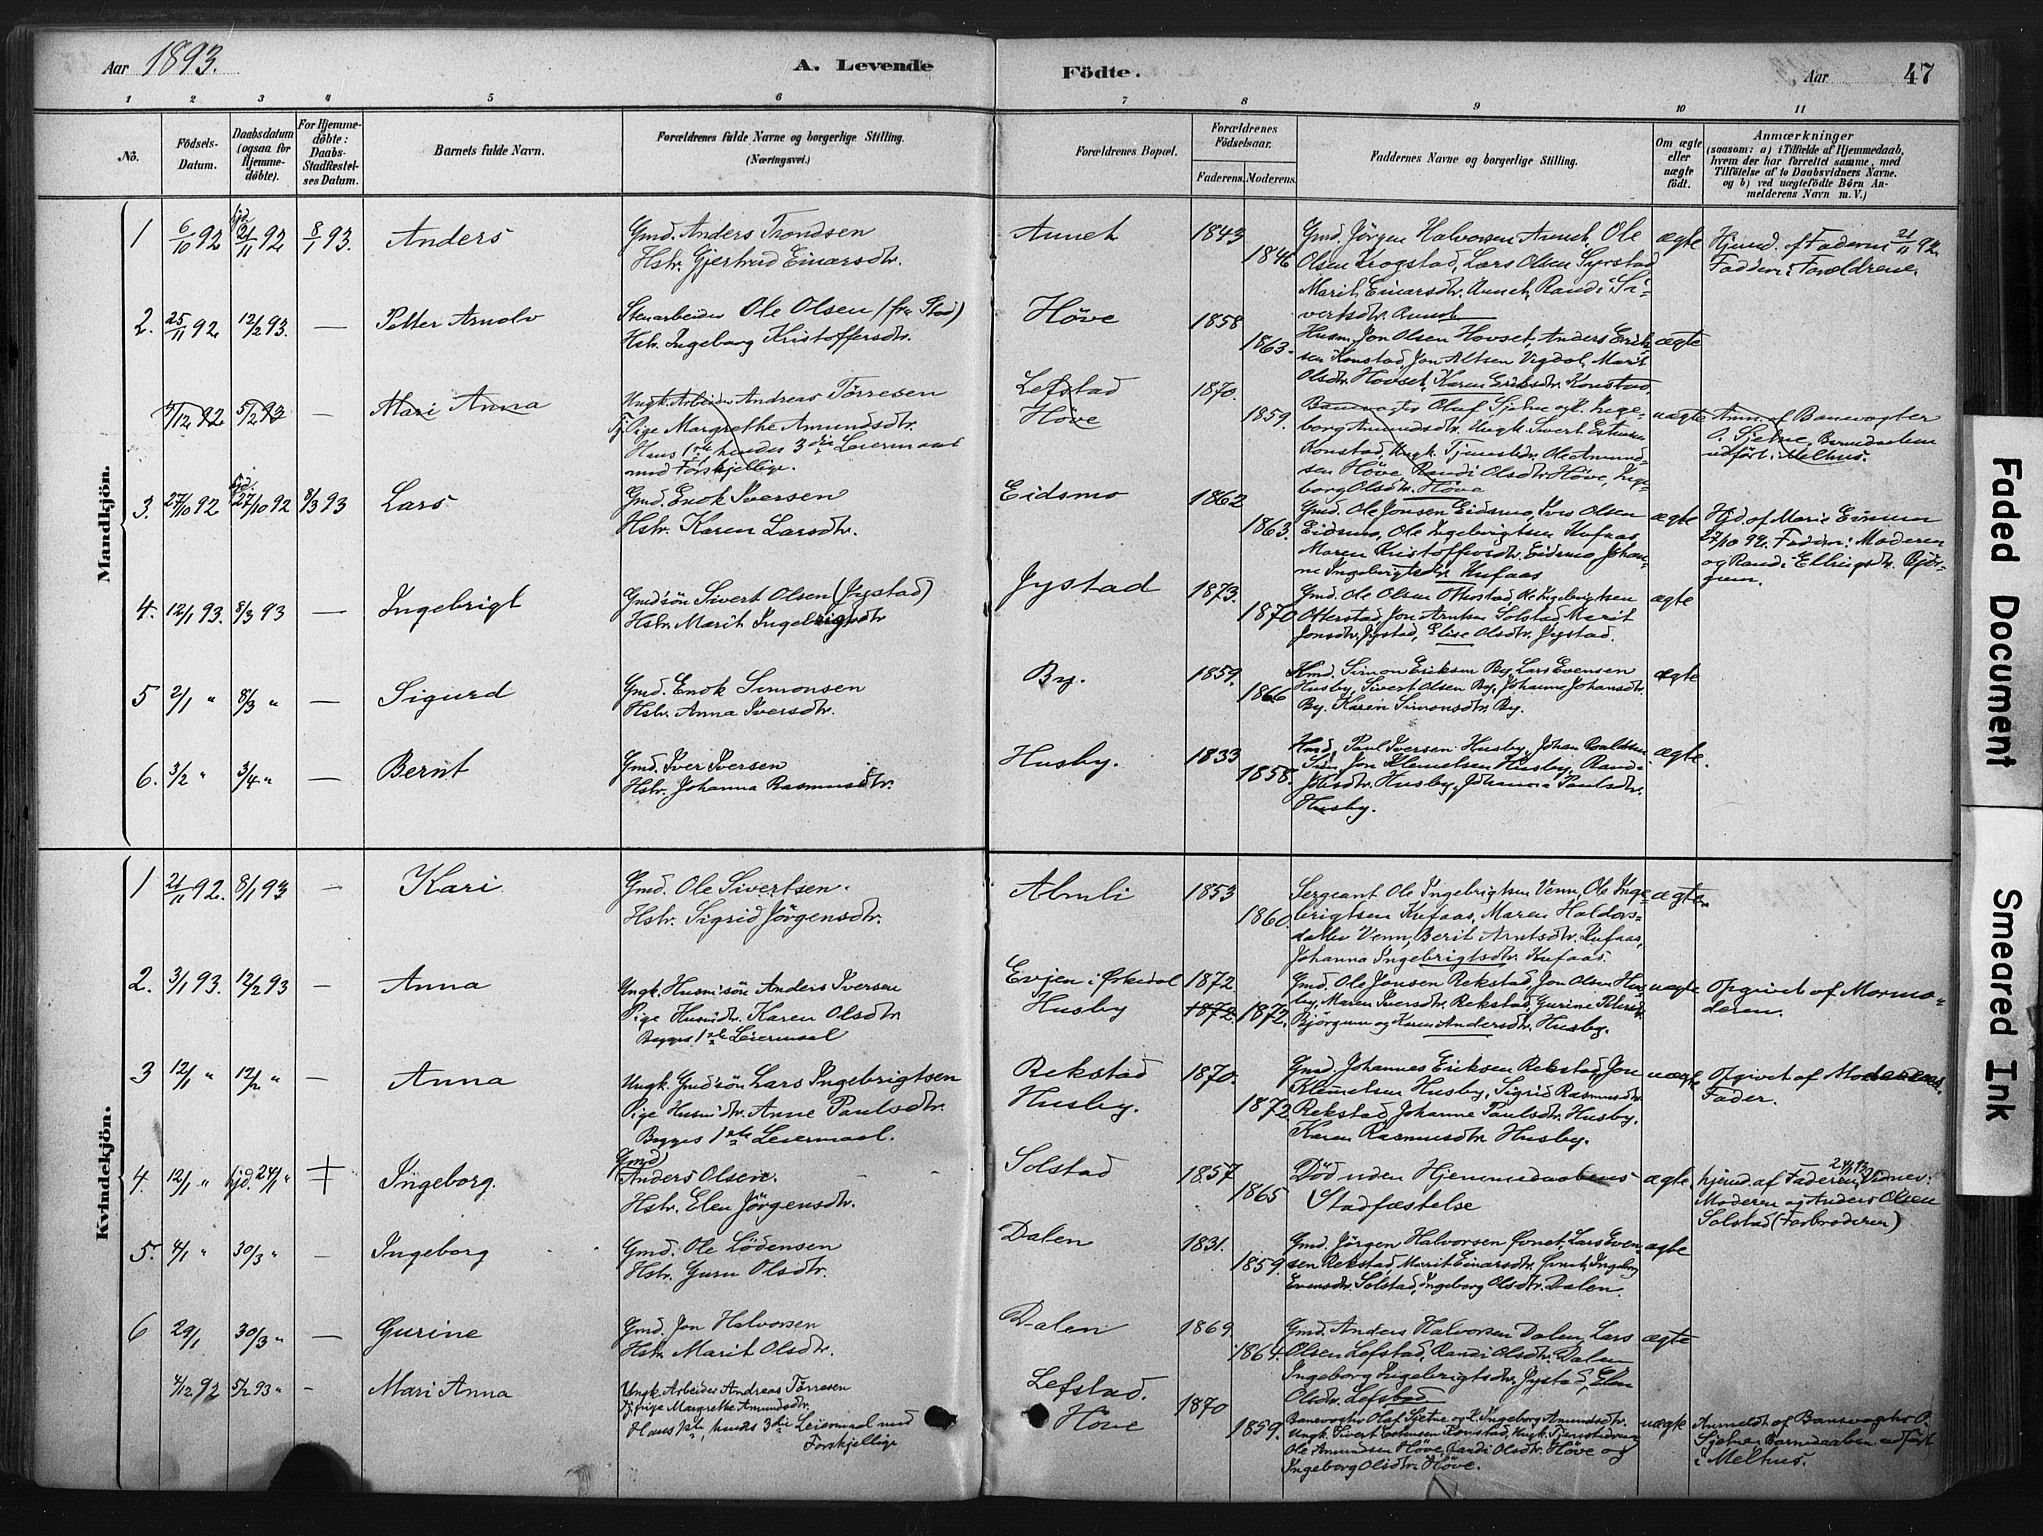 Aar 1893.
A. Levende Födte.
Aar 47
1 2 3 4 5 6 7 8 9 10 11
No.
Födsels-
Datum.
Daabsdatum
(ogsaa for
Hjemme-
döbte).
For Hjemme-
döbte:
Daabs-
Stadfæstel-
ses Datum.
Barnets fulde Navn.
Forældrenes fulde Navne og borgerlige Stilling.
(Næringsvei.)
Forældrenes Bopæl.
Forældrenes
Födselsaar.
Faderens. Moderens.
Faddernes Navne og borgerlige Stilling.
Om ægte
eller
uægte
födt.
Anmærkninger
(saasom: a) i Tilfælde af Hjemmedaab,
hvem der har forrettet samme, med
Tilföielse af to Daabsvidners Navne.
og b) ved uægtefödte Börn An-
melderens Navn m. V.)
Mandkjön.
1 6/10 92 hjd. 21/11 92 8/1 93. Anders
Gmd. Anders Trondsen
Hstr. Gjertrud Einarsdtr.
1843
1846
Gmd. Jörgen Halvorsen Ole
Olsen Krogstad, Lars Olsen
Marit Einarsdtr. Randi Si-
vertsdtr.
ægte
Hjemd. af Faderen 21/11 92.
Faddere: Forældrene.
2. 25/11 92 12/2 93. — Petter Arnolv
Stenarbeider Ole Olsen (fra Stad)
Hstr. Ingeborg Kristoffersdtr.
Höve
1858
1863.
Husm. Jon Olsen Hovset, Anders Erik-
sen Konstad, Jon Altsen Vigdal, Marit
Olsdtr. Hovset, Karen Eriksdtr. Konstad.
ægte
4/12 92 5/2 93 — Mari Anna
Ungk. Arbeider Andreas Törresen
Tj. Pige Margrethe Amundsdtr.
Hans 1ste hendes 3die Leiermaal
med Forskjellige.
Lefstad
Höve
1870.
1859.
Banevogter Olaf Sjetne og H. Inge-
borg Amundsdtr. Ungk. Sivert Estensen
Konstad, Ungk. Tjenestedr. Ole Amund-
sen Höve, Randi Olsdtr. Höve, Inge-
borg Olsdtr. Höve
uægte
Anm. af Banevogter
O. Sjetne, Barnedaaben
udfört i Melhus.
3. 27/10 92 hjd. 27/10 92 8/3 93 Lars
Gmd. Enok Iversen
Hstr. Karen Larsdtr.
Eidsmo
1862
1863.
Gmd. Ole Jonsen Eidsmo, Iver Olsen
Eidsmo, Ole Ingebrigtsen Kufaas
Maren Kristoffersdtr. Eidsmo, Johan-
ne Ingebrigtsdtr. Kufaas
ægte
Hjd. af Marie
27/10 92. Faddere: Moderen
og Randi Ellingsdtr. Björ-
gum.
4. 12/1 93. 8/3 93 — Ingebrigt
Gmdssön Sivert Olsen (Jystad)
Hstr. Marit Ingebrigtsdtr
Jystad
1873.
1870
Gmd. Ole Olsen Ingebrigtsen
Otterstad, Jon Arntsen Solstad, Marit
Jonsdtr. Jystad, Elise Olsdtr. Jystad.
ægte
5 2/1 " 8/3 " — Sigurd
Gmd. Enok Simonsen
Hstr. Anna Iversdtr.
By.
1859.
1866
Simon Eriksen By, Lars Evensen
Husby, Sivert Olsen By, Johanne Johansdtr.
By, Karen Simonsdtr. By.
ægte
6. 3/2 " 3/4 " — Bernt
Gmd. Iver Iversen
Hstr. Johanna Rasmusdtr.
Husby.
1833
1858.
Paul Iversen Husby, Johan
Jon Klemetsen Husby, Randi
Husby, Johanna Paulsdtr.
Husby.
ægte.
Kvindekjön.
1 21/11 92. 8/1 93 — Kari
Gmd. Ole Sivertsen.
Hstr. Sigrid Jörgensdtr.
Almli
1853
1860.
Sergeant Ole Ingebrigtsen Venn, Ole Inge-
brigtsen Kufaas, Maren Haldors-
datter Venn, Berit Arntsdtr. Kufaas,
Johanna Ingebrigtsdtr. Kufaas.
ægte.
2. 3/1 93. 12/2 93 — Anna
Ungk. Husm.sön Anders Iversen
Pige Husmdtr. Karen Olsdtr
Begges 1ste Leiermaal
Evjen i Örkedal
Husby
1872.
1872. 1872.
Gmd. Ole Jonsen Rekstad, Jon Olsen Hus-
by, Maren Iversdtr. Rekstad, Gurine
Björgum og Karen Andersdtr. Husby.
uægte
Opgivet af Mormo-
deren.
3 12/1 " 12/2 " — Anna
Ungk. Gmdssön Lars Ingebrigtsen
Pige Husmdtr. Anne Paulsdtr.
Begges 1ste Leiermaal.
Rekstad
Husby.
1870.
1872
Gmd. Johannes Eriksen Rekstad, Jon
Klemetsen Husby, Sigrid Rasmusdtr
Rekstad, Johanne Paulsdtr. Husby.
Karen Rasmusdtr. Husby.
uægte
Opgivet af
Fader.
4. 12/1 " hjd. 24/1 " Ingeborg.
Gmd
Anders Olsen.
Hstr. Elen Jörgensdtr.
Solstad
1857
1865
Död uden Hjemmedaabens
Stadfæstelse
ægte
hjemd. af Faderen 24/1 93 Vidner:
Moderen og Anders Olsen
Solstad (Farbroderen)
5. 4/1 " 30/3 " — Ingeborg
Gmd. Ole Lödensen
Hstr. Guru Olsdtr.
Dalen
1831.
1859.
Gmd. Jörgen Halvorsen Lars Even-
sen Rekstad, Marit Einarsdtr. Ingeborg
Evensdtr. Solstad, Ingeborg Olsdtr. Dalen.
ægte
6 29/1 30/3 " — Gurine
Gmd. Jon Halvorsen
Hstr. Marit Olsdtr.
Dalen
1869.
1864.
Gmd. Anders Halvorsen Dalen, Lars
Olsen Lefstad, Randi Olsdtr. Dalen
Ingeborg Ingebrigtsdtr. Jystad, Elen
Olsdtr. Lefstad
ægte
4/12 92 5/2 93 " — Mari Anna
Ungk. Arbeider Andreas Törresen
Tj. Pige Margrethe Amundsdtr.
Hans 1ste hendes 3die Leiermaal med
Forskjellige
Lefstad.
Höve
1870
1859.
Banevogter Olaf Sjetne og H. Ingeborg Amundsdtr.
Ungk. Sivert Estensen Konstad, Ungk. Tjenestedreng
Ole Amundsen Höve, Randi Olsdtr. Höve og
Ingeborg Olsdtr. Höve.
uægte
Anmeldt af Banevogter O.
Sjetne, Barnedaaben udfört
i Melhus.
Faded Document
Smeared Ink